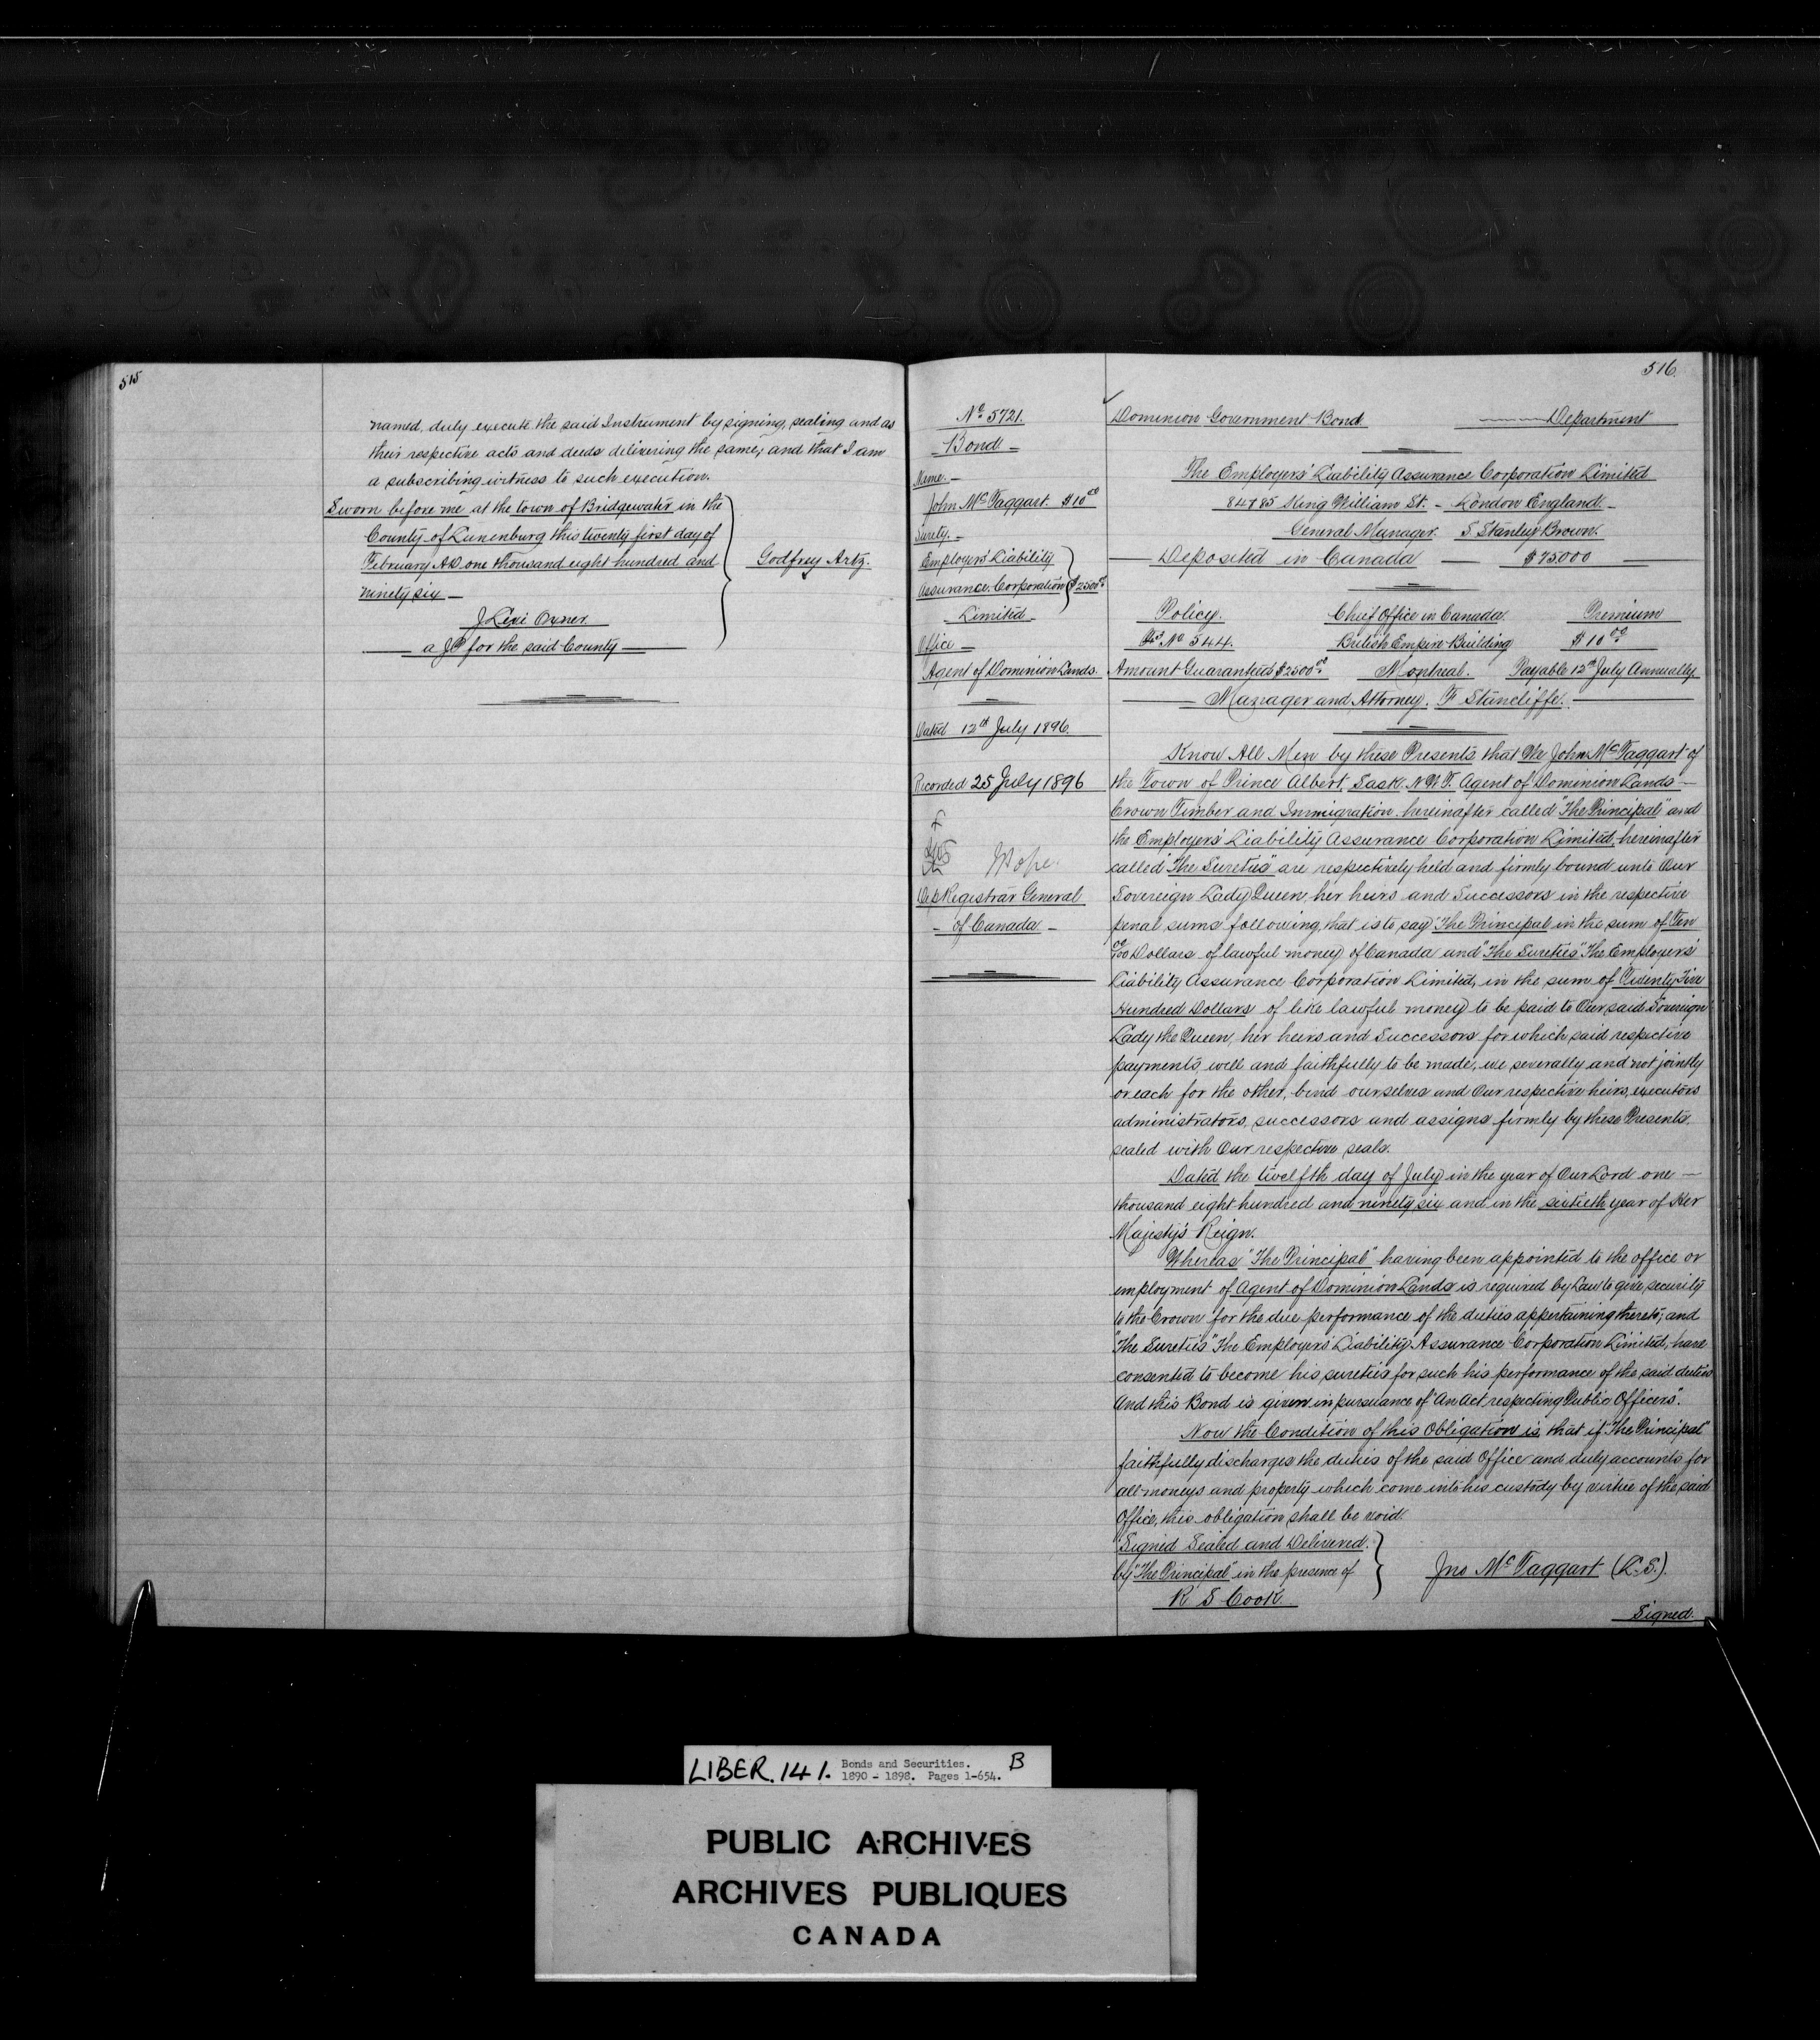 515
named, duly execute the said Instrument by signing, sealing and as
their respective acts and deeds delivering the same; and that I am
a subscribing witness to such execution.
Sworn before me at the town of Bridgewater in the
County of Lunenburg this twenty first day of
February A.D. one thousand eight hundred and
ninety six —
Godfrey Artz.
J Levi Oxner
a JP for the said County
516.
No 5721.
Bond —
Name. —
John McTaggart. $10 00
Surety. —
Employers' Liability
Assurance Corporation $2500 00
Limited —
Office —
Agent of Dominion Lands.
Dated 12th July 1896.
Recorded 25 July 1896
Pope
Dep Registrar General
— of Canada —
Dominion Government Bond Department
The Employers' Liability Assurance Corporation Limited
84 & 85 King William St. — London England. —
General Manager. S. Stanley Brown.
Deposited in Canada — $75.000 —
Policy. Chief Office in Canada. Premium
No 544. British Empire Building $10 00
Amount Guaranteed $2500 00 Montreal. Payable 12th July Annually
Manager and Attorney. F Stancliffe.
Know All Men by these Presents that We John McTaggart of
the Town of Prince Albert, Sask. N.W.T. Agent of Dominion Lands —
Crown Timber and Immigration hereinafter called "The Principal" and
the Employers' Liability Assurance Corporation Limited, hereinafter
called "The Sureties" are respectively held and firmly bound unto Our
Sovereign Lady Queen, her heirs and Successors in the respective
penal sums following, that is to say "The Principal in the sum of Ten
00/100 Dollars of lawful money of Canada and "The Sureties" The Employers'
Liability Assurance Corporation Limited, in the sum of Twenty Five
Hundred Dollars of like lawful money to be paid to Our said Sovereign
Lady the Queen, her heirs and Successors for which said respective
payments, well and faithfully to be made, we severally and not jointly
or each for the other, bind ourselves and Our respective heirs, executors
administrators, successors and assigns firmly by these Presents,
sealed with Our respective seals.
Dated the twelfth day of July in the year of Our Lord one —
thousand eight hundred and ninety six and in the sixtieth year of Her
Majesty's Reign.
Whereas "The Principal" having been appointed to the office or
employment of Agent of Dominion Lands is required by Law to give security
to the Crown for the due performance of the duties appertaining thereto; and
"The Sureties" The Employers' Liability Assurance Corporation Limited, have
consented to become his sureties for such his performance of the said duties
And this Bond is given in pursuance of "An Act respecting Public Officers".
Now the Condition of this Obligation is, that if "The Principal"
faithfully discharges the duties of the said Office and duly accounts for
all moneys and property which come into his custody by virtue of the said
Office, this obligation shall be void.
Signed Sealed and Delivered.
by "The Principal" in the presence of
Jno McTaggart (L.S.).
R S Cook
Signed.
LIBER. 141. Bonds and Securities. B
1890 - 1898. Pages 1-654.
PUBLIC ARCHIVES
ARCHIVES PUBLIQUES
CANADA